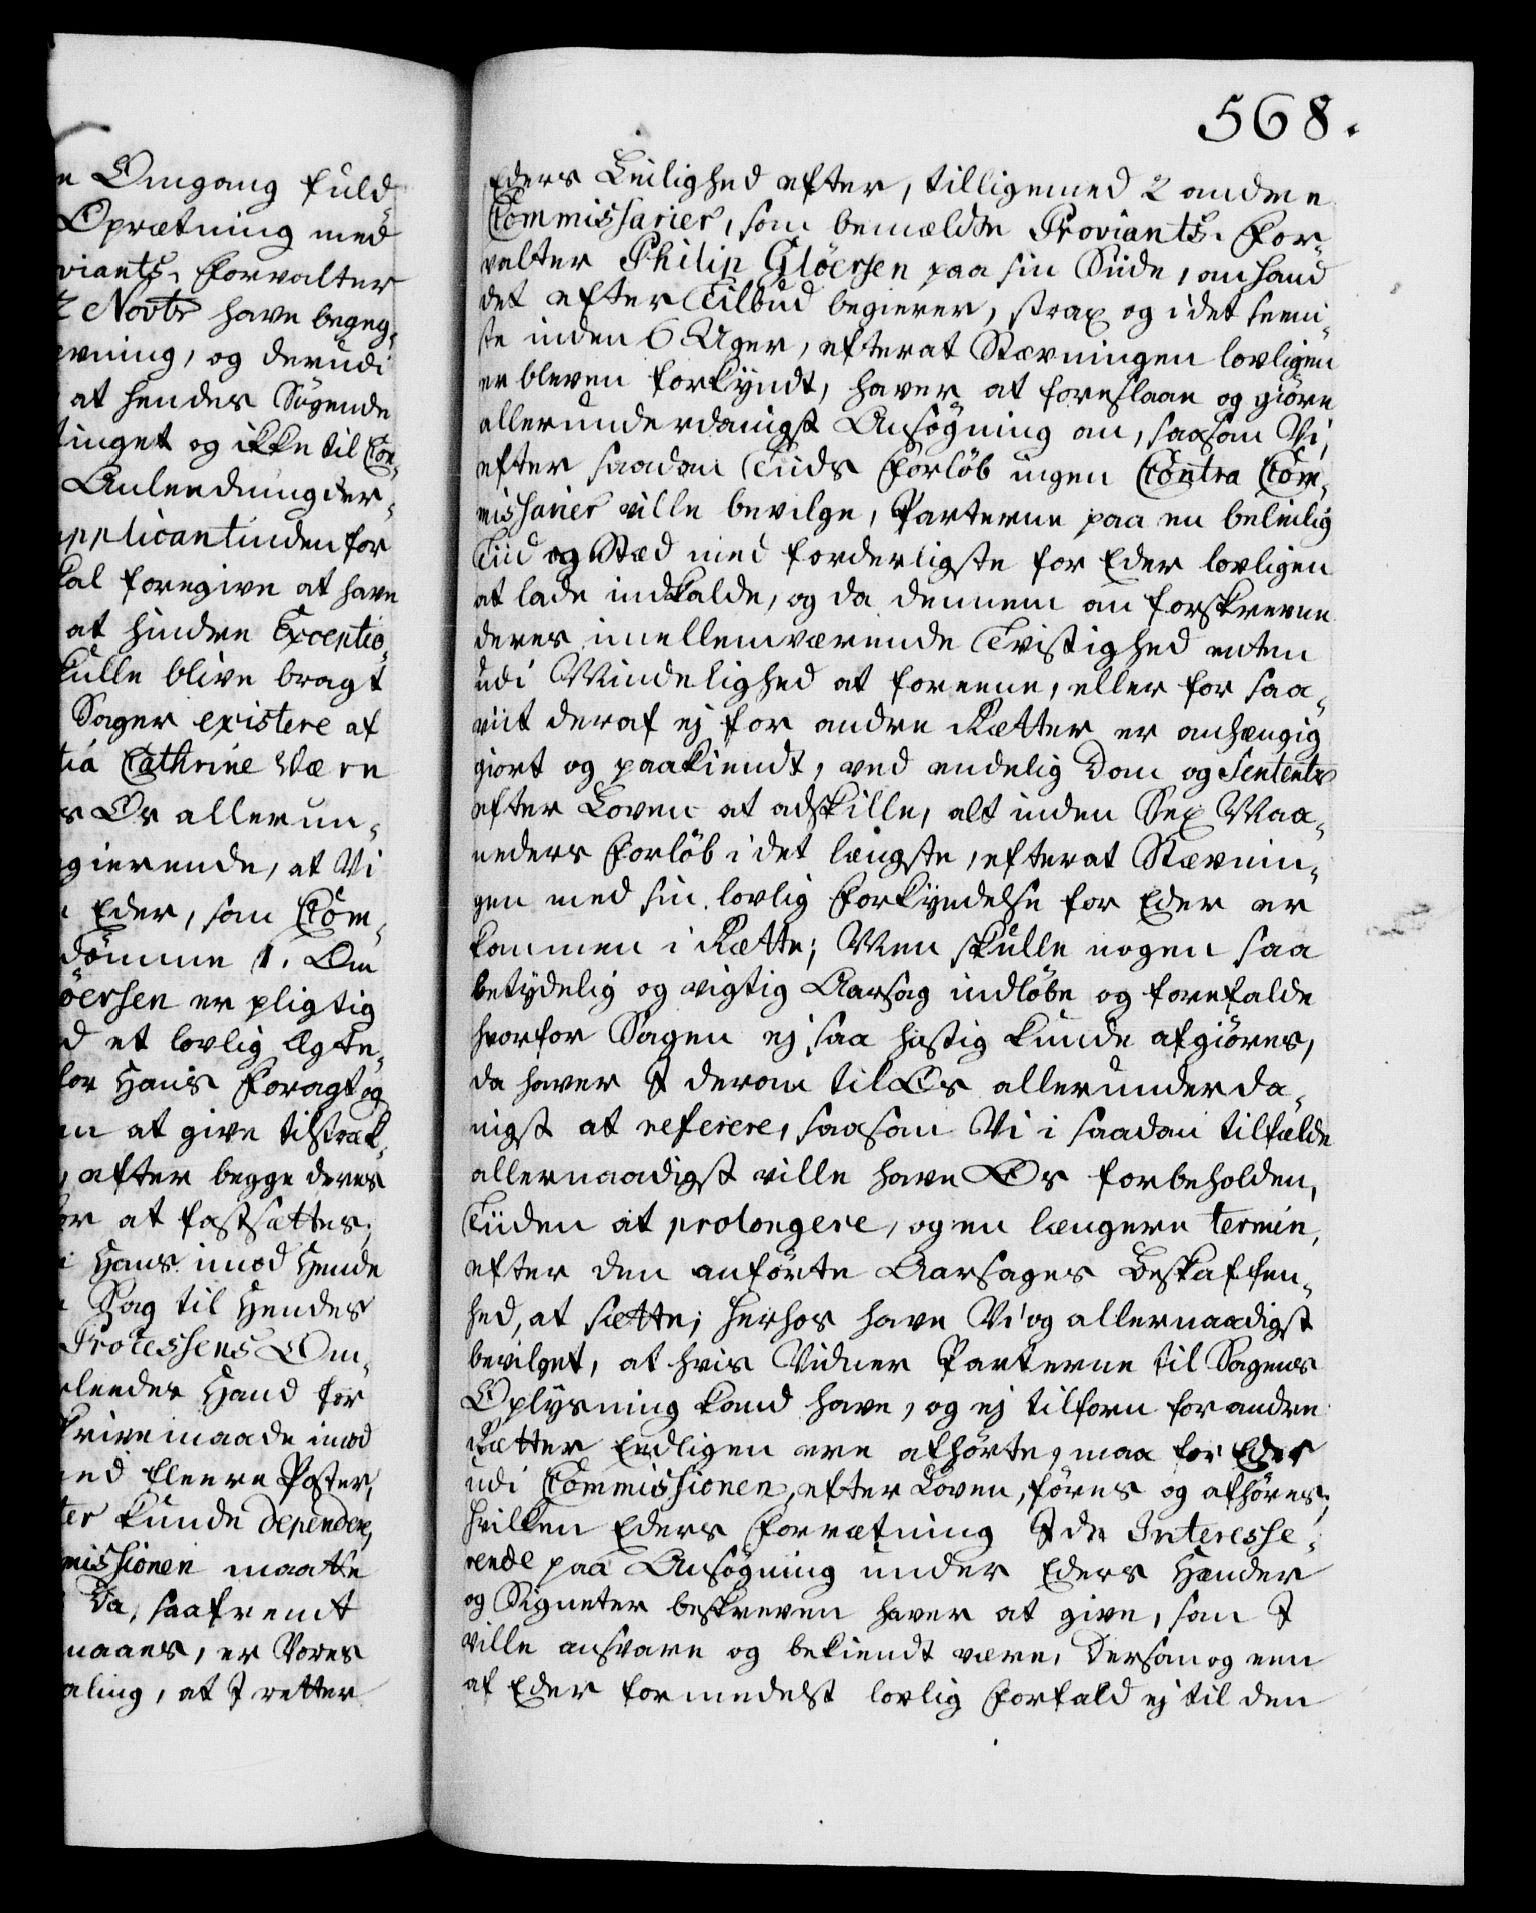 n Omgang fuld
Oprætning med
viants. Forvalter
Novbr have begeg-
ævning, og derudi
at hendes Søgende
tinget og ikke til Con-
Anleedning der-
upplicantinden for
kal foregive at have
at hindre Exceptio-
kulle blive bragt
Sager existere af
tia Cathrine Wærn
s Os allerun-
gierende, at Vi
Eder, som Com-
dömme 1. Om
öersen er pligtig
d et lovlig Ægte-
for Hans Foragt og
m at give tilstræk-
, efter begge deres
or at fastsættes,
i Hans imod Hende
Sag til Hendes
Processens Om-
eleeder Haand for
krivemaade imod
med fleere Poster,
ter kunde dependere,
missionen maatte
Da, saafremt
maaes, er Vores
aling, at I retter
568.
Eders Leilighed efter, tilligemed 2 andre
Commissarier, som bemældte Proviants. For-
valter Philip Glöersen paa sin Siide, om hand
det efter Tilbud begierer, strax og i det seeni-
ste inden 6 Uger, efterat Stævningen lovligen
er bleven forkyndt, haver at foreslaae og giöre
allerunderdanigst Ansögning om, saasom Vi,
efter saadan Tiids Forlöb ingen Contra Com-
missarier ville bevilge, Parterne paa en beleilig
Tiid og Stæd med forderligste for Eder lovligen
at lade indkalde, og da dennem om forskrevne
deres imellemværende Tvistighed enten
udi Mindelighed at foreene, eller for saa-
viit deraf ej for andre Rætter er anhængig
giort og paakiendt, ved endelig Dom og Sententz
efter Loven at adskille, alt inden Sex Maa-
neders Forlöb i det længste, efterat Stævnin-
gen med sin lovlig Forkyndelse for Eder er
kommen i Rætte; Men skulle nogen saa
betydelig og vigtig Aarsag indlöbe og forefalde
hvorfor Sagen ej saa hastig kunde afgiöres,
da haver I derom til Os allerunderda-
nigst at referere, saasom Vi i saadan tilfælde
allernaadigst ville have Os forbeholden,
Tiiden at prolongere, og en længere termin,
efter den anförte Aarsages Beskaffen-
hed, at sætte; herhos have Vi og allernaadigst
bevilget, at hvis Vidner Parterne til Sagens
Oplysning kand have, og ej tilforn for andre
Rætter Eedligen ere afhörte, maa for Eder
udi Commissionen, efter Loven, föres og afhöres,
hvilken Eders Forrætning I de Interesse-
rende paa Ansøgning under Eders Hænder
og Signeter beskreven haver at give, som I
ville ansvare og bekiendt være. Dersom og een
af Eder formedelst lovlig Forfald ej til den